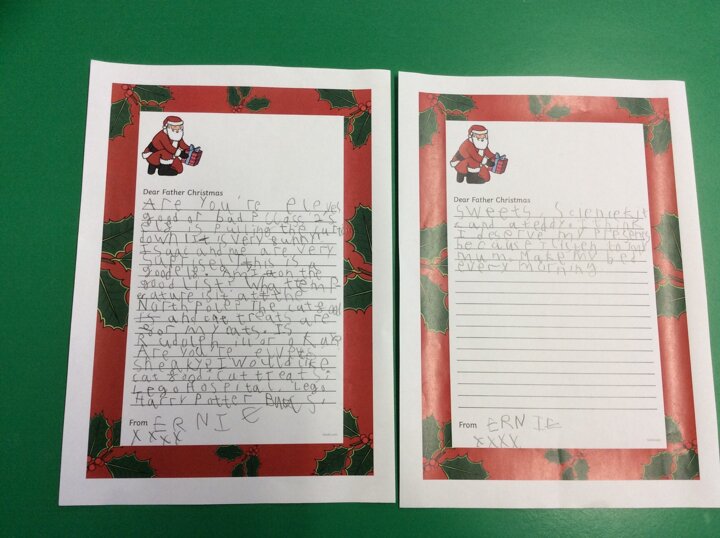 Dear Father Christmas
Are you're elevs
good or bad? class 2's
elf is pulling the
down! It is very funny.
Isaac and me are very
this is a
good elf. Am I on the
good list? What temp-
erature is it at the
North pole? the cat food
and cat treats are
for my cats. Is
Rudolph ill or o.k are
Are you're elves
sneaky? I would like
cat food, cat treats.
Lego Hospital. Lego
Harry Potter
From ERNIE
xxxx
Dear Father Christmas
Sweets, Science kit
and a teddy.
I deserve my presents
because I listen to my
mum. Make my bed
every morning
From ERNIE
xxxx